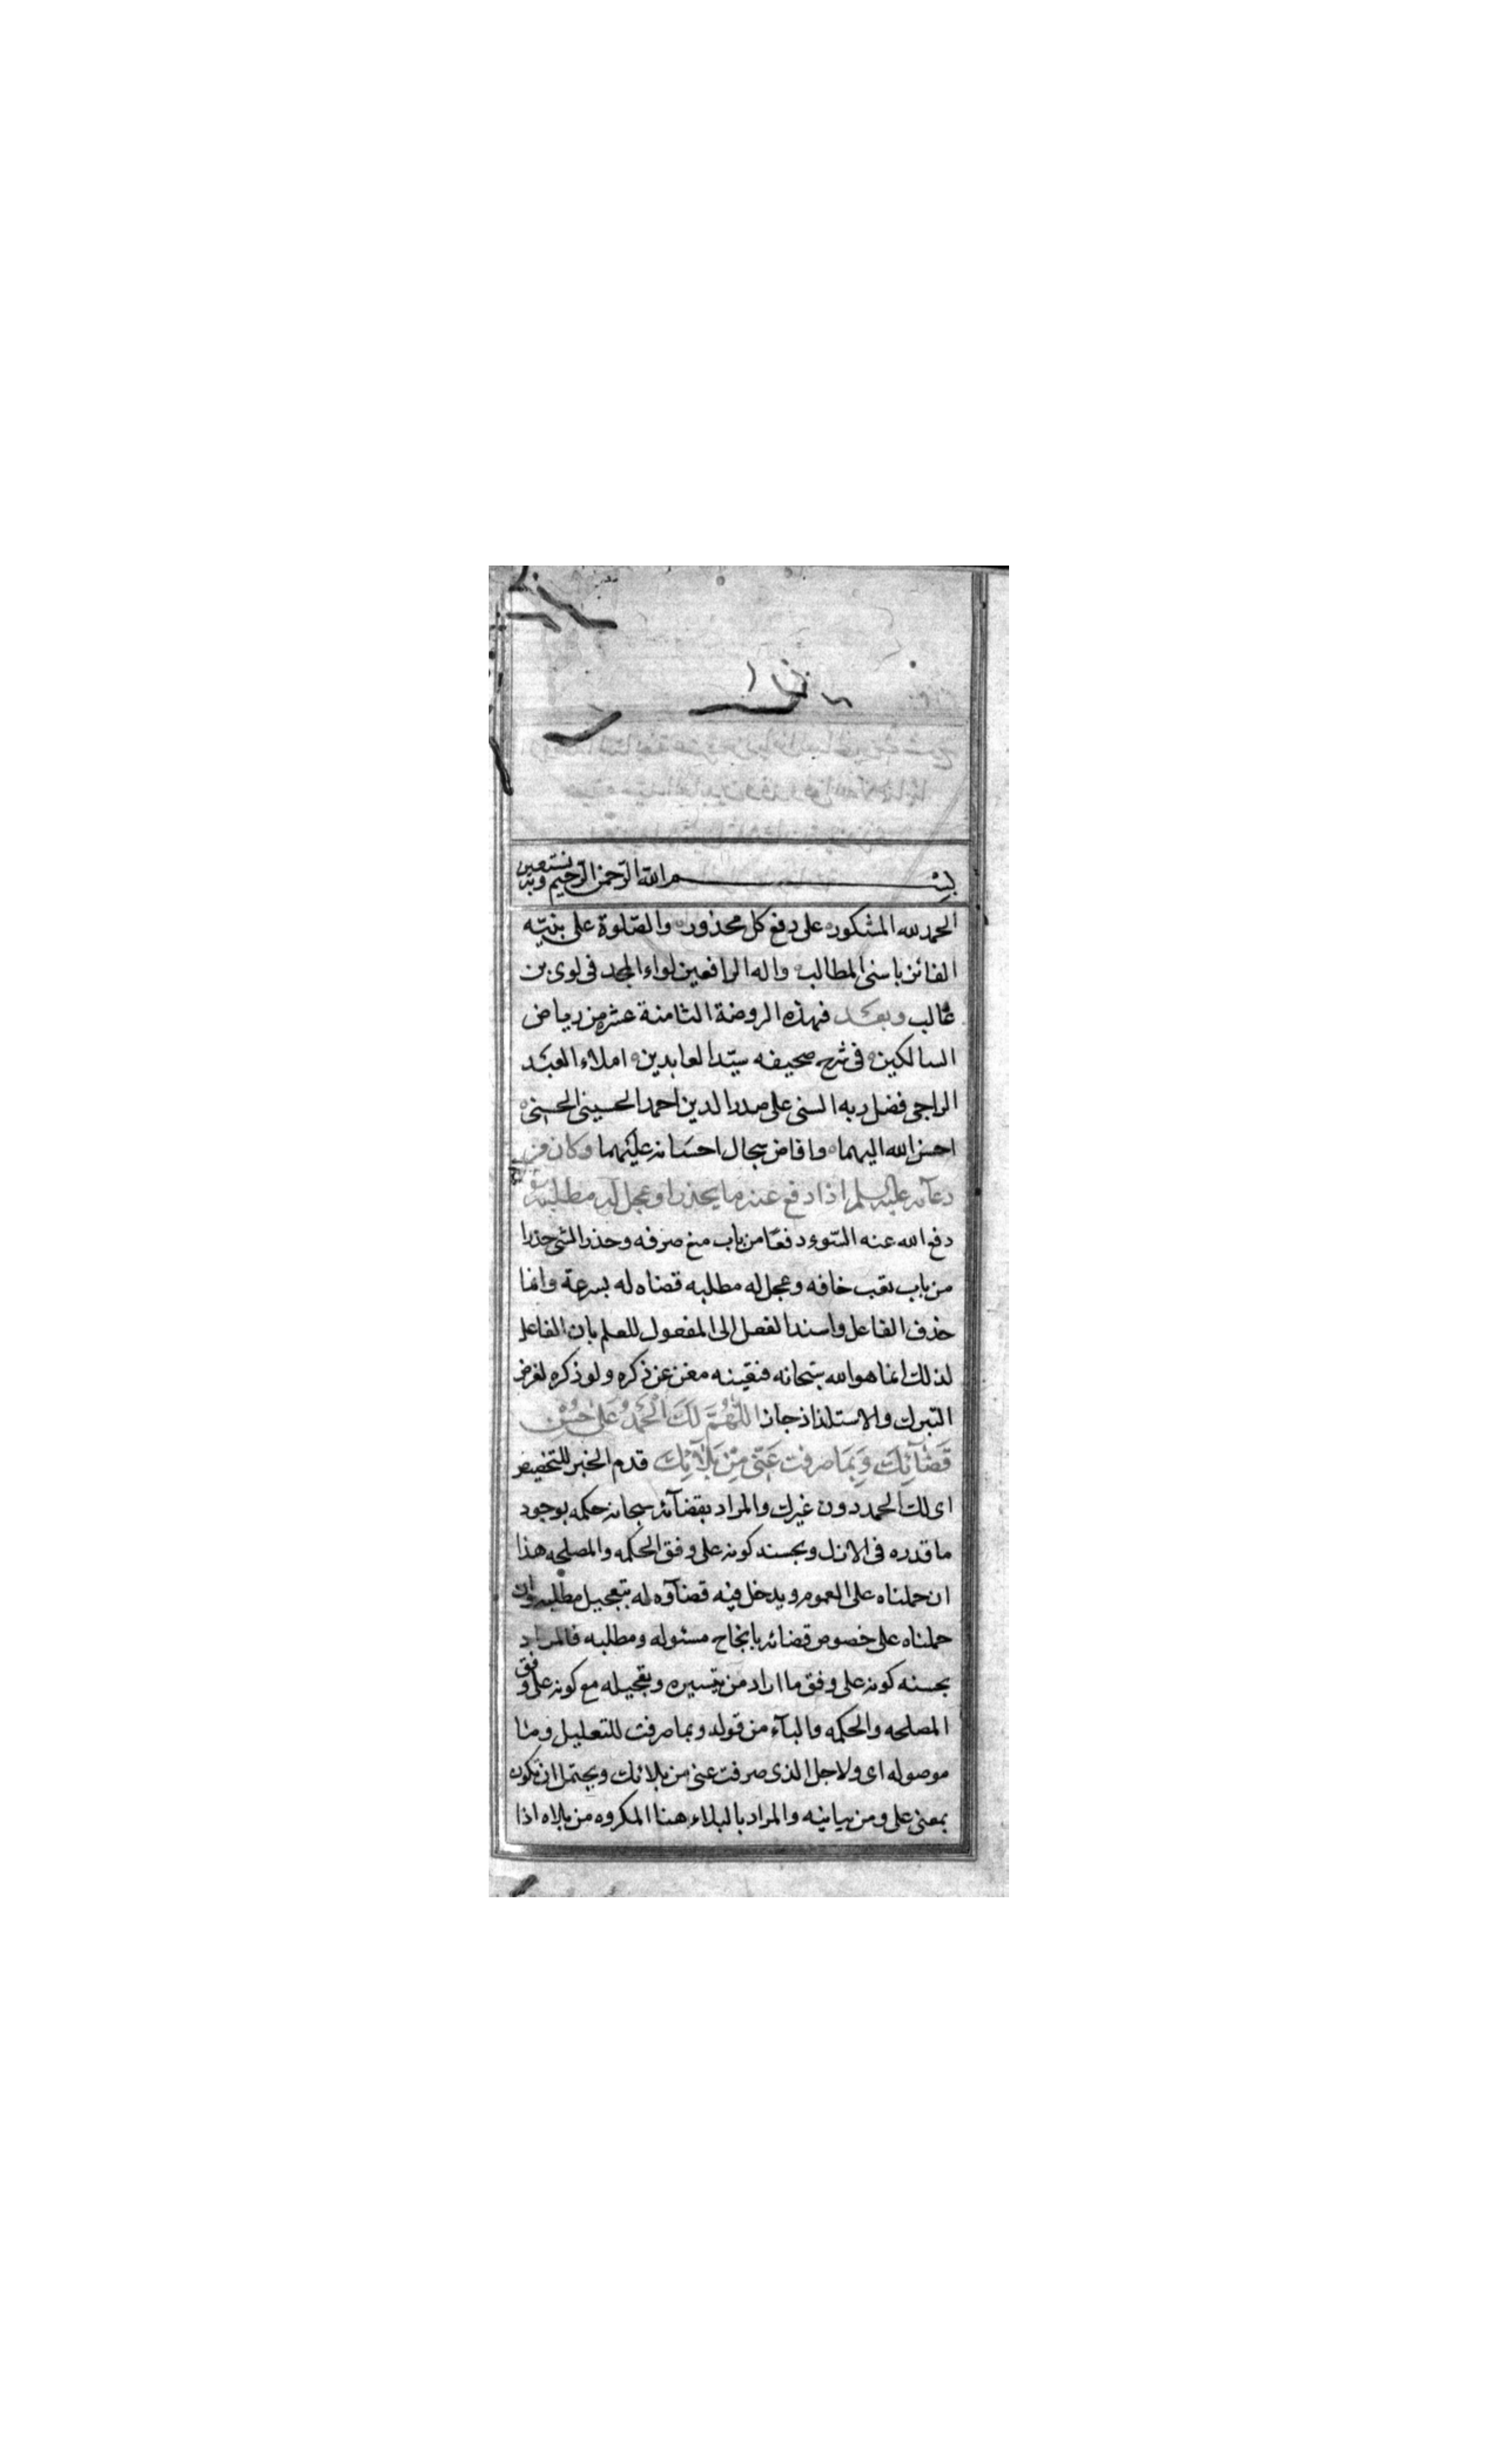 بسم الله الرحمن الرحيم وبه نستعين
الحمد لله المشكور على دفع كل محذور والصلوة على نبيه
الفائز باسنى المطالب واله الرافعين لواء المجد فى لوى بن
غالب وبعد فهذه الروضة الثامنة عشر من رياض
السالكين فى شرح صحيفه سيد العابدين املاء العبد
الراجى فضل ربه السنى على صدر الدين احمد الحسينى الحسنى
احسن الله اليهما وافاض سجال احسانه عليهما وكان من
دعائه عليه السلم اذا دفع عنه ما يحذر او عجل له مطلبه
دفع الله عنه السوء دفعا من باب منع صرفه وحذر الشى حذرا
من باب تعب خافه وعجل له مطلبه قضاه له بسرعة وانما
حذف الفاعل واسند الفعل الى المفعول للعلم بان الفاعل
لذلك انما هو الله سبحانه فتعينه مغن عن ذكره ولو ذكره لغرض
التبرك والاستلذاذ جاز اللهم لك الحمد على حسن
قَضَآئِكَ وَبِمَا صرفت عَنّى مِنْ بَلَآئِكَ قدم الخبر للتخصيص
اى لك الحمد دون غيرك والمراد بقضآئه سبحانه حكمه بوجود
ما قدره فى الازل وبحسنه كونه على وفق الحكمه والمصلحه هذا
ان حملناه على العموم ويدخل فيه قضآوه له بتعجيل مطلبه وان
حملناه على خصوص قضائه بانجاح مسئوله ومطلبه فالمراد
بحسنه كونه على وفق ما اراد من تيسيره وتعجيله مع كونه على وفق
المصلحه والحكمه والبآء من قوله وبما صرفت للتعليل وما
موصوله اى ولاجل الذى صرفت عنى من بلائك ويحتمل ان تكون
بمعنى على ومن بيانيه والمراد بالبلاء هنا المكروه من بلاه اذا